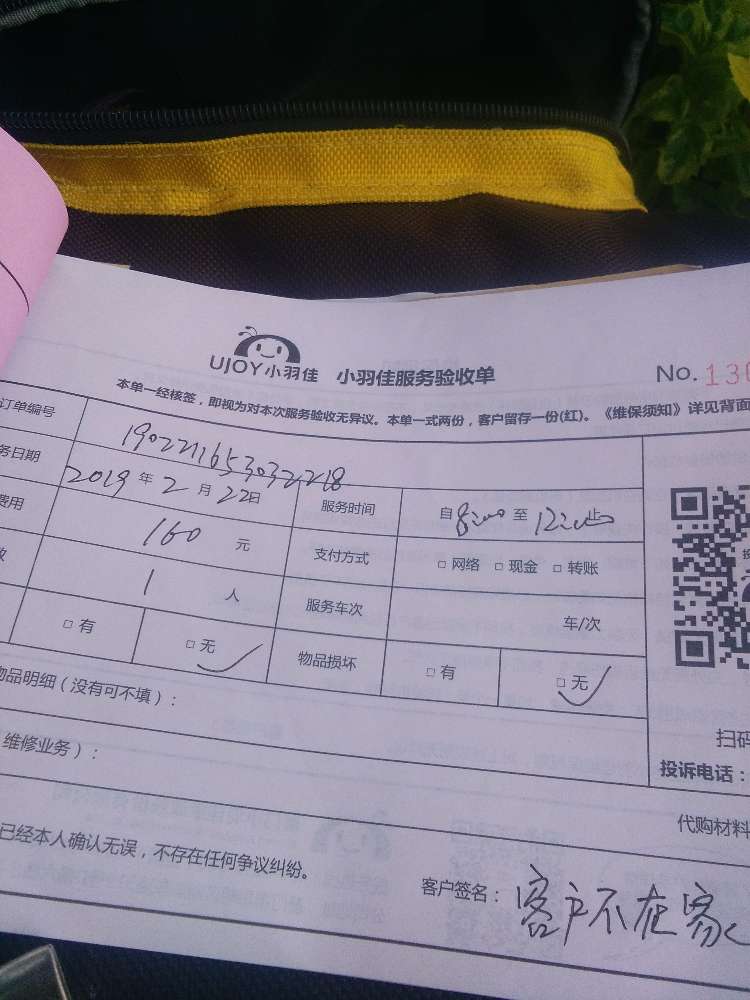 UJOY小羽佳 小羽佳服务验收单 No. 130
本单一经核签，即视为对本次服务验收无异议。本单一式两份，客户留存一份(红)。《维保须知》详见背面
订单编号 1902211653032218
务日期 2019年2月22日 服务时间 自8:00至12:00止
费用 160元 支付方式 □网络 □现金 □转账
1人 服务车次 车/次
□有 □无 物品损坏 □有 □无
物品明细（没有可不填）：
扫码
维修业务）：
投诉电话：
代购材料
已经本人确认无误，不存在任何争议纠纷。
客户签名：客户不在家